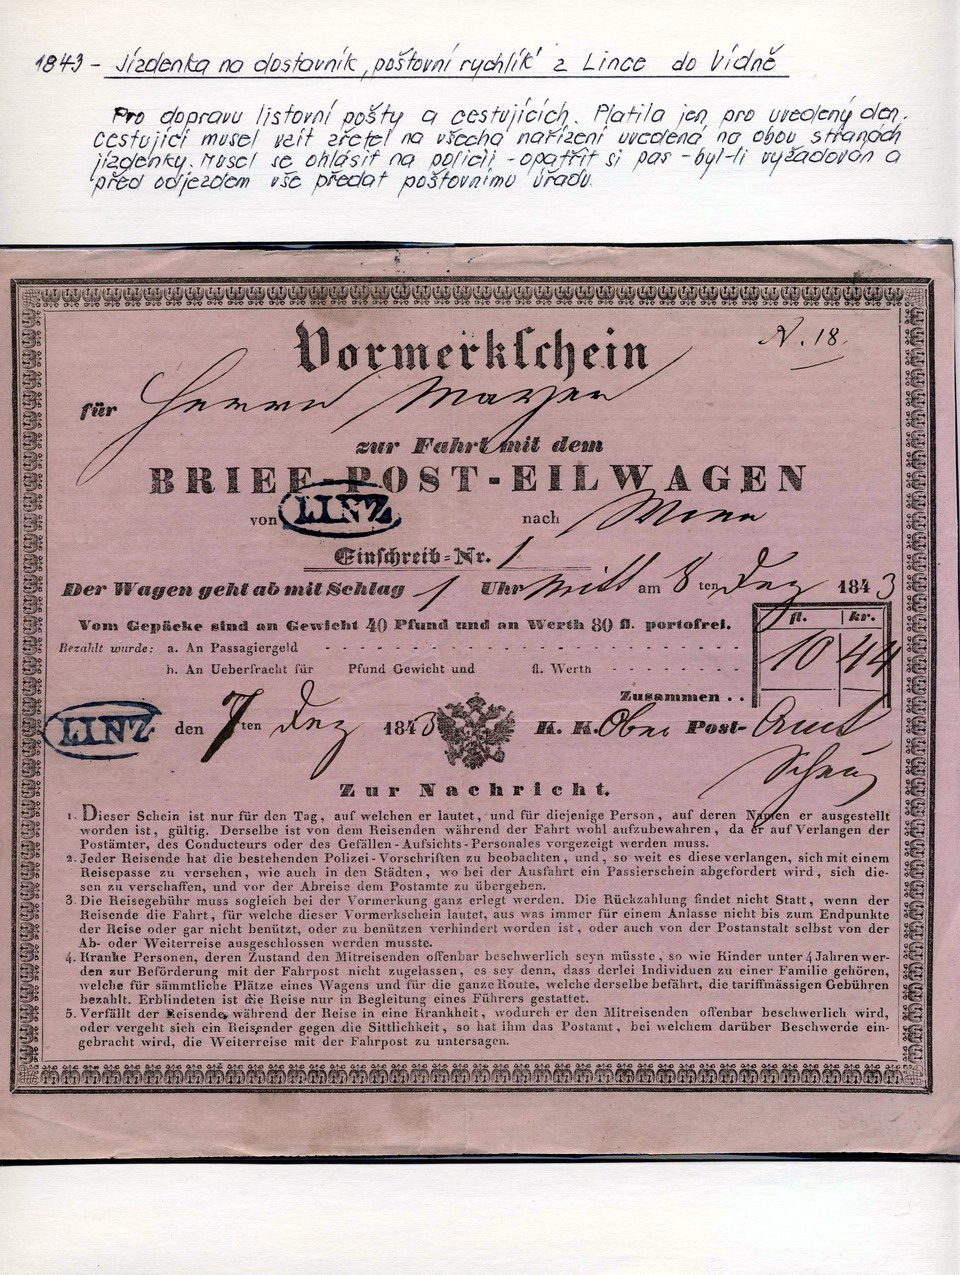 1843 - Jízdenka na dostavník „poštovní rychlík" z Lince do Vídně
Pro dopravu listovní pošty a cestujících. Platila jen pro uvedený den.
Cestující musel vzít zřetel na všecha nařízení uvedená na obou stranách
jízdenky. Musel se ohlásit na policii - opatřit si pas - byl-li vyžadován a
před odjezdem vše předat poštovnímu úřadu.
N. 18.
Vormerkschein
für Herrn Mayer
zur Fahrt mit dem
BRIEF-POST-EILWAGEN
von LINZ nach Wien
Einschreib-Nr. 1
Der Wagen geht ab mit Schlag 1 Uhr Mitt am 8ten Dez 1843
Vom Gepäcke sind an Gewicht 40 Pfund und an Werth 80 fl. portofrei.
fl. kr.
Bezahlt wurde: a. An Passagiergeld - - - - - - - - - - - - - - - - - - 10 44
b. An Ueberfracht für Pfund Gewicht und fl. Werth - - - - - - -
Zusammen . .
LINZ den 7ten Dez 1843 K. K. Ober Post-Amt
Zur Nachricht.
1. Dieser Schein ist nur für den Tag, auf welchen er lautet, und für diejenige Person, auf deren Namen er ausgestellt
worden ist, gültig. Derselbe ist von dem Reisenden während der Fahrt wohl aufzubewahren, da er auf Verlangen der
Postämter, des Conducteurs oder des Gefällen-Aufsichts-Personales vorgezeigt werden muss.
2. Jeder Reisende hat die bestehenden Polizei-Vorschriften zu beobachten, und, so weit es diese verlangen, sich mit einem
Reisepasse zu versehen, wie auch in den Städten, wo bei der Ausfahrt ein Passierschein abgefordert wird, sich die-
sen zu verschaffen, und vor der Abreise dem Postamte zu übergeben.
3. Die Reisegebühr muss sogleich bei der Vormerkung ganz erlegt werden. Die Rückzahlung findet nicht Statt, wenn der
Reisende die Fahrt, für welche dieser Vormerkschein lautet, aus was immer für einem Anlasse nicht bis zum Endpunkte
der Reise oder gar nicht benützt, oder zu benützen verhindert worden ist, oder auch von der Postanstalt selbst von der
Ab- oder Weiterreise ausgeschlossen werden musste.
4. Kranke Personen, deren Zustand den Mitreisenden offenbar beschwerlich seyn müsste, so wie Kinder unter 4 Jahren wer-
den zur Beförderung mit der Fahrpost nicht zugelassen, es sey denn, dass derlei Individuen zu einer Familie gehören,
welche für sämmtliche Plätze eines Wagens und für die ganze Route, welche derselbe befährt, die tariffmässigen Gebühren
bezahlt. Erblindeten ist die Reise nur in Begleitung eines Führers gestattet.
5. Verfällt der Reisende, während der Reise in eine Krankheit, wodurch er den Mitreisenden offenbar beschwerlich wird,
oder vergeht sich ein Reisender gegen die Sittlichkeit, so hat ihm das Postamt, bei welchem darüber Beschwerde ein-
gebracht wird, die Weiterreise mit der Fahrpost zu untersagen.